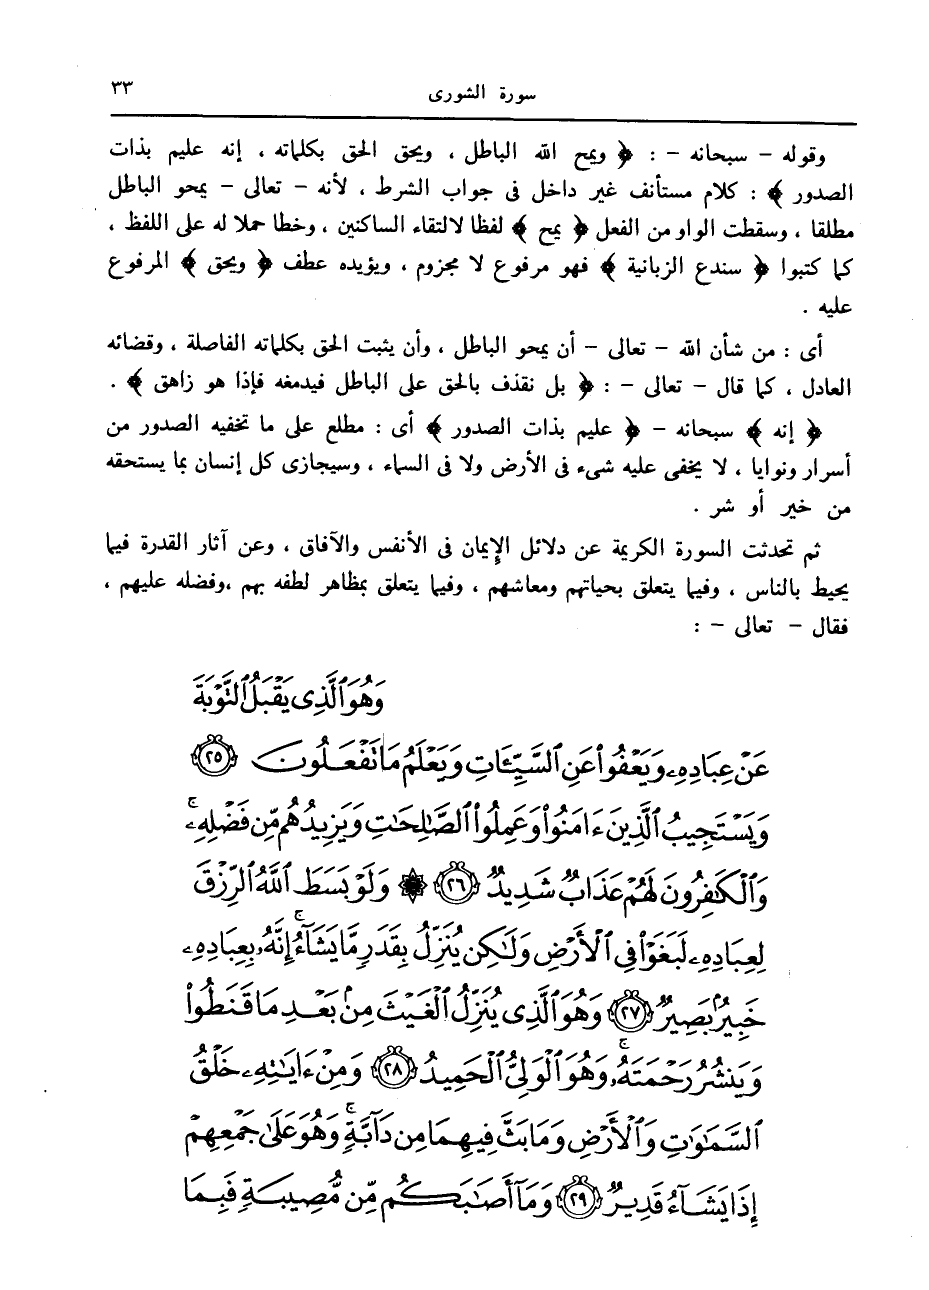 سورة الشورى ٣٣
وقوله – سبحانه – : ﴿ ويمح الله الباطل ، ويحق الحق بكلماته ، إنه عليم بذات
الصدور ﴾ : كلام مستأنف غير داخل فى جواب الشرط ، لأنه – تعالى – يمحو الباطل
مطلقا ، وسقطت الواو من الفعل ﴿ يمح ﴾ لفظا لالتقاء الساكنين ، وخطا حملا له على اللفظ ،
كما كتبوا ﴿ سندع الزبانية ﴾ فهو مرفوع لا مجزوم ، ويؤيده عطف ﴿ ويحق ﴾ المرفوع
عليه .
أى : من شأن الله – تعالى – أن يمحو الباطل ، وأن يثبت الحق بكلماته الفاصلة ، وقضائه
العادل ، كما قال – تعالى – : ﴿ بل نقذف بالحق على الباطل فيدمغه فإذا هو زاهق ﴾ .
﴿ إنه ﴾ سبحانه – ﴿ عليم بذات الصدور ﴾ أى : مطلع على ما تخفيه الصدور من
أسرار ونوايا ، لا يخفى عليه شىء فى الأرض ولا فى السماء ، وسيجازى كل إنسان بما يستحقه
من خير أو شر .
ثم تحدثت السورة الكريمة عن دلائل الإيمان فى الأنفس والآفاق ، وعن آثار القدرة فيما
يحيط بالناس ، وفيما يتعلق بحياتهم ومعاشهم ، وفيما يتعلق بمظاهر لطفه بهم ،وفضله عليهم ،
فقال – تعالى – :
وَهُوَ ٱلَّذِى يَقْبَلُ ٱلتَّوْبَةَ
عَنْ عِبَادِهِۦ وَيَعْفُوا۟ عَنِ ٱلسَّيِّـَٔاتِ وَيَعْلَمُ مَا تَفْعَلُونَ ﴿٢٥﴾
وَيَسْتَجِيبُ ٱلَّذِينَ ءَامَنُوا۟ وَعَمِلُوا۟ ٱلصَّـٰلِحَـٰتِ وَيَزِيدُهُم مِّن فَضْلِهِۦۚ
وَٱلْكَـٰفِرُونَ لَهُمْ عَذَابٌ شَدِيدٌ ﴿٢٦﴾ ۞ وَلَوْ بَسَطَ ٱللَّهُ ٱلرِّزْقَ
لِعِبَادِهِۦ لَبَغَوْا۟ فِى ٱلْأَرْضِ وَلَـٰكِن يُنَزِّلُ بِقَدَرٍ مَّا يَشَآءُۚ إِنَّهُۥ بِعِبَادِهِۦ
خَبِيرٌۢ بَصِيرٌ ﴿٢٧﴾ وَهُوَ ٱلَّذِى يُنَزِّلُ ٱلْغَيْثَ مِنۢ بَعْدِ مَا قَنَطُوا۟
وَيَنشُرُ رَحْمَتَهُۥۚ وَهُوَ ٱلْوَلِىُّ ٱلْحَمِيدُ ﴿٢٨﴾ وَمِنْ ءَايَـٰتِهِۦ خَلْقُ
ٱلسَّمَـٰوَٰتِ وَٱلْأَرْضِ وَمَا بَثَّ فِيهِمَا مِن دَآبَّةٍۚ وَهُوَ عَلَىٰ جَمْعِهِمْ
إِذَا يَشَآءُ قَدِيرٌ ﴿٢٩﴾ وَمَآ أَصَـٰبَكُم مِّن مُّصِيبَةٍ فَبِمَا